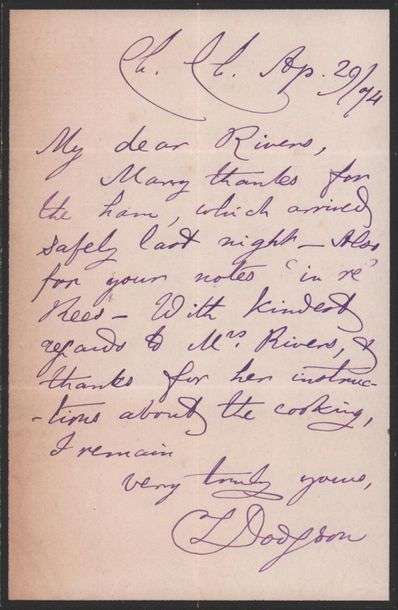 Ch. Ch. Ap. 29/74
My dear Rivers,
Many thanks for
the ham, which arrived
safely last night – Also
for your notes "in re"
Rees – With kindest
regards to Mrs. Rivers, &
thanks for her instruc-
-tions about the cooking,
I remain
very truly yours,
CLDodgson